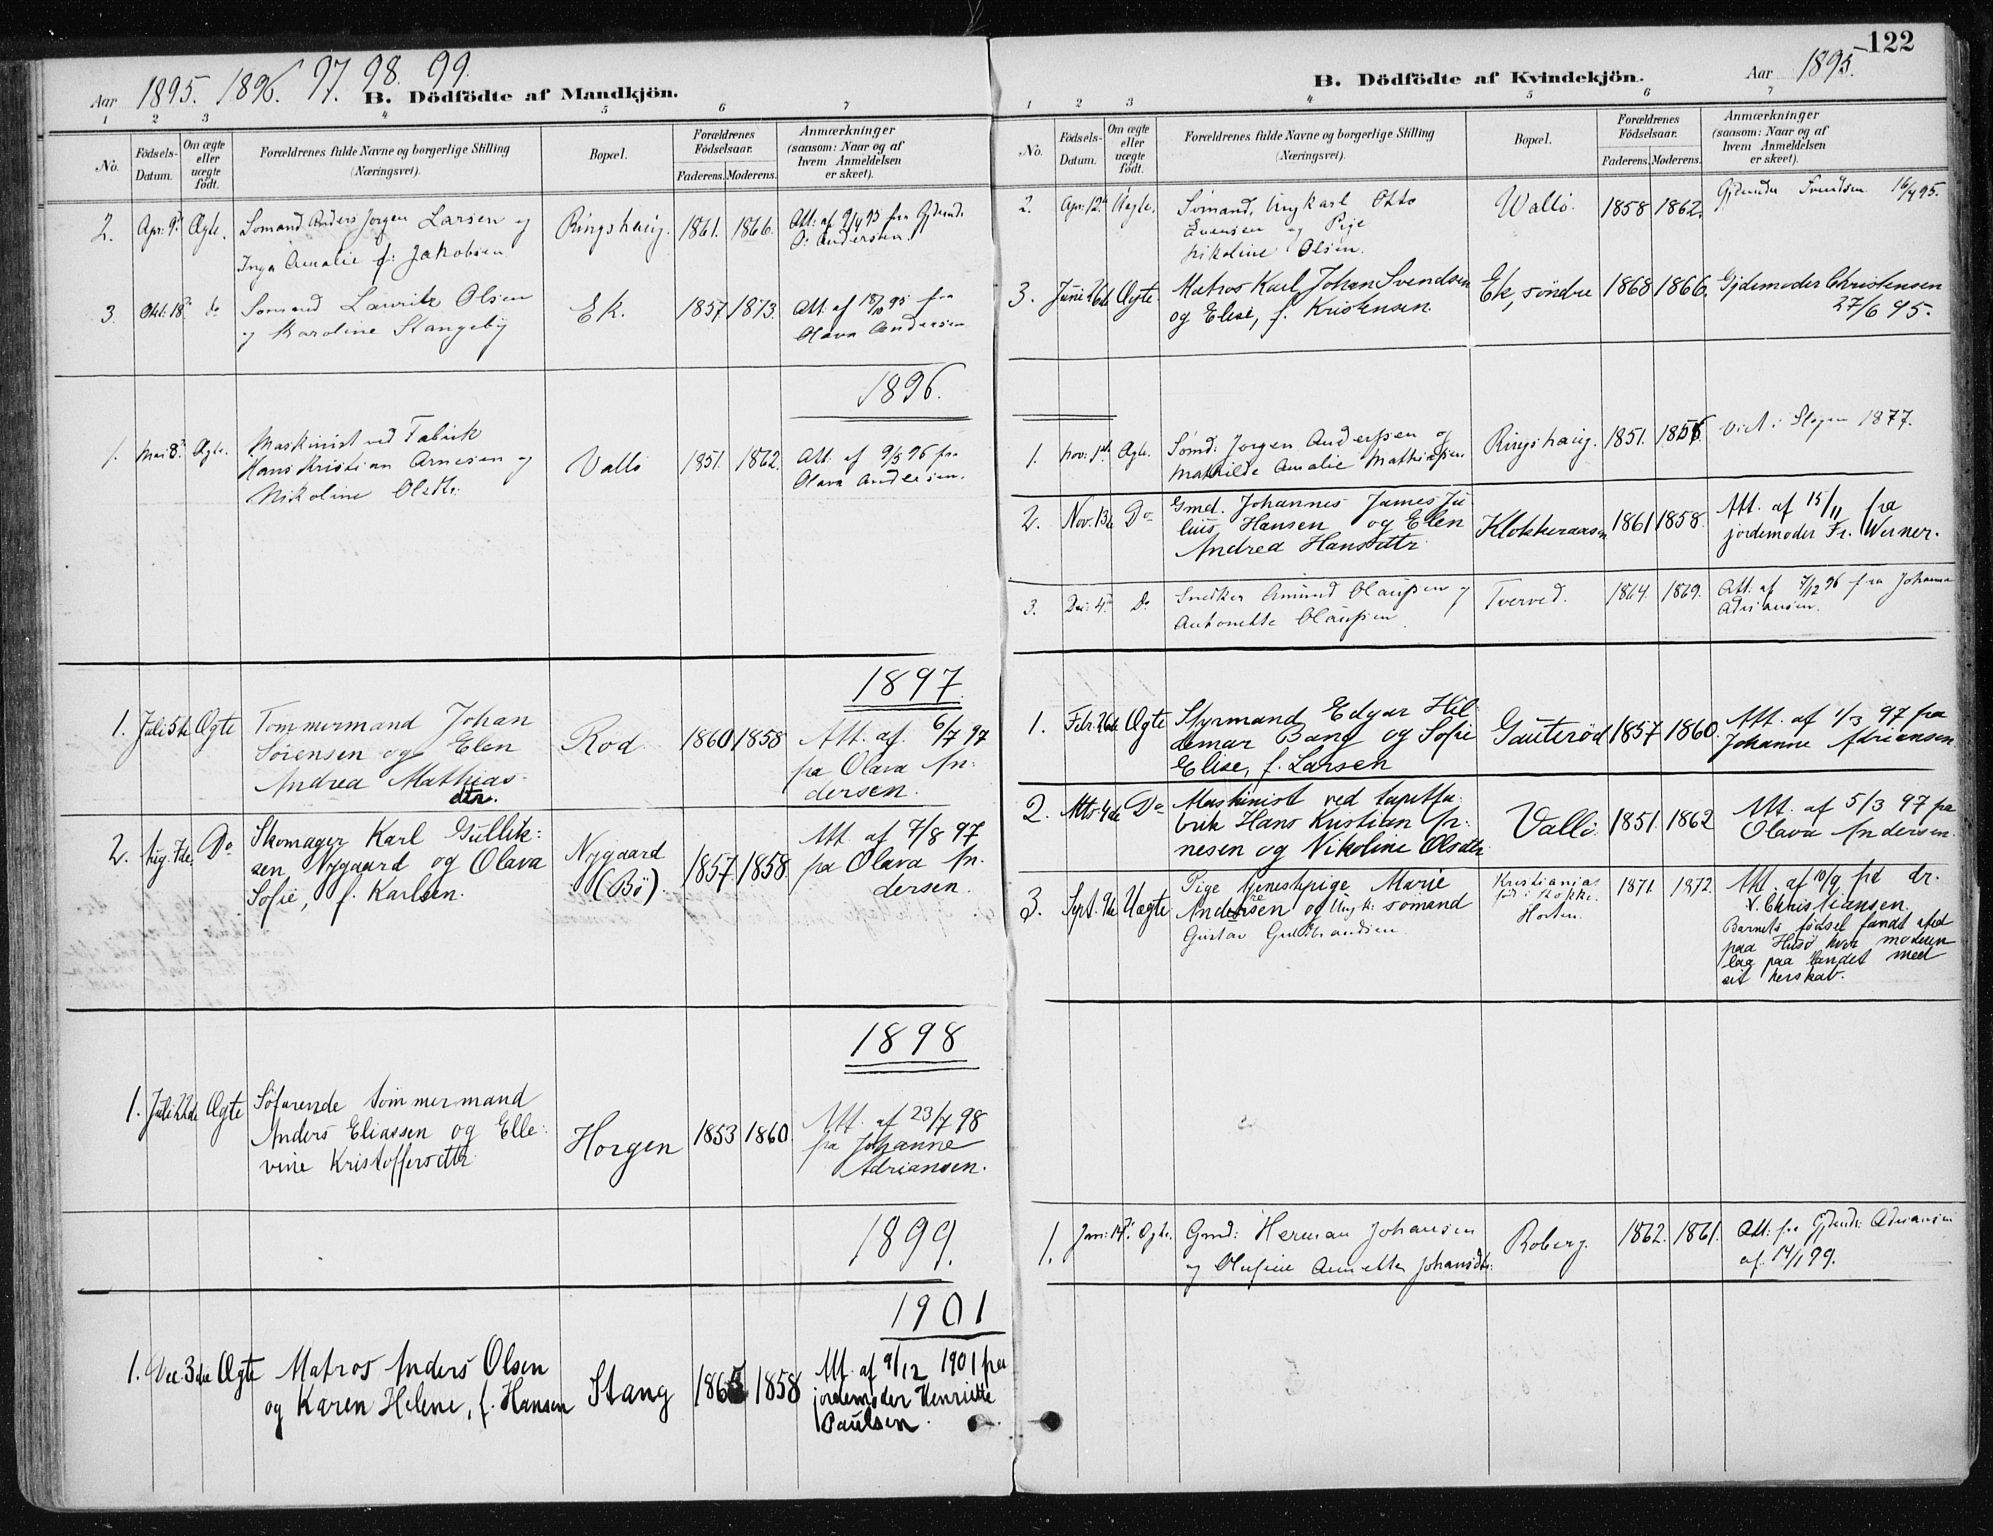 Aar 1895. 1896. 97. 98. 99.
B. Dödfödte af Mandkjön.
1 2 3 4 5 6 7
No.
Födsels-Datum.
Om ægte eller uægte födt.
Forældrenes fulde Navne og borgerlige Stilling
(Næringsvei).
Bopæl.
Forældrenes Födselsaar.
Faderens. Moderens.
Anmærkninger
(saasom: Naar og af
hvem Anmeldelsen
er skeet).
2. Apr: 9d. Ægte. Sømand Anders Jørgen Larsen og
Inga Amalie f: Jakobsen
Ringshaug. 1861. 1866. Att: af 9/4 95 fra Gjdmdr.
O: Andersen.
3. Okt: 18d do Sømand Lauritz Olsen
og Karoline Stangeby
Ek. 1857 1873. Att. af 18/10 95 fra
Olava Andersen
1896.
1. Mai 8d. Ægte. Maskinist ved Fabrik
Hans Kristian Arnesen og
Nikoline Olsdtr:
Vallö 1851. 1862. Att: af 9/5 96 fra
Olava Andersen.
1897.
1. Juli 5te Ægte Tommermand Johan
Sörensen og Elen
Andrea Mathias-
dtr.
Rod. 1860 1858 Att. af 6/7 97
fra Olava An-
dersen.
2. Aug. 7de. Do Skomager Karl Gullik-
sen Nygaard og Olava
Sofie, f. Karlsen.
Nygaard
(Bö).
1857 1858. Att. af 7/8 97
fra Olava An-
dersen.
1898
1. Juli 22de Ægte Söfarende tömmermand
Anders Eliassen og Elle-
vine Kristoffersdtr
Horgen 1853 1860. Att. af 23/7 98
fra Johanne
Adriansen.
1899.
1901
1. Dec. 3die Ægte Matros Anders Olsen
og Karen Helene, f. Hansen
Stang 1865 1858 Att. af 9/12 1901 fra
jordemoder Henriette
Paulsen.
122
B. Dödfödte af Kvindekjön.
Aar 1895.
1 2 3 4 5 6 7
No.
Födsels-Datum.
Om ægte eller uægte födt.
Forældrenes fulde Navne og borgerlige Stilling
(Næringsvei).
Bopæl.
Forældrenes Födselsaar.
Faderens. Moderens.
Anmærkninger
(saasom: Naar og af
hvem Anmeldelsen
er skeet).
2. Apr: 12d. Uægte. Sømand, Ungkarl Otto
Evensen og Pige
Nikoline Olsen.
Wallö. 1858 1862. Gjdmdr Svendsen 16/4 95.
3. Juni 26de Ægte. Matros Karl Johan Svendsen
og Elise, f. Kristensen.
Ek, söndre 1868 1866. Gjdemoder Christensen
27/6 95.
1. Nov: 1ste Ægte. Sømd: Jørgen Anderssen og
Mathilde Amalie Mathiassen
Ringshaug. 1851. 1856. Viet i Slagen 1877.
2. Nov. 13de Do Gmd. Johannes James Ju-
lius Hansen og Elen
Andrea Hansdtr.
Klokkeraasen 1861 1858. Att. af 15/11 fra
jordemoder Fr. Werner.
3. Dec: 4de Do Snedker Amund Olaussen og
Antonette Olaussen.
Tverved. 1864. 1869. Att. af 7/12 96 fra Johanne
Adriansen.
1. Febr. 26de Ægte Styrmand Edgar Hil-
demar Bang og Sofie
Elise, f. Larsen
Gauteröd 1857 1860. Att. af 1/3 97 fra
Johanne Adriansen
2. Mts 4de Do Maskinist ved tapetfa-
brik Hans Kristian Ar-
nesen og Nikoline Olsdtr
Vallö. 1851. 1862 Att. af 5/3 97 fra
Olava Andersen.
3. Sept. 9de Uægte Pige tjenestepige Marie
Andersen og Ungk: sømand
Gustav Gulbrandsen
Kristiania
Horten.
1871. 1872. Att. af 10/9 fra dr.
V. Christiansen.
Barnets födsel fandt sted
paa Husö hvor moderen
laa paa landet med
sit herskab.
1. Jan: 14d. Ægte. Gmd: Herman Johansen
og Olufine Annette Johansdtr:
Roberg. 1862. 1861. Att: fra Gjdmdr: Adriansen
af 14/1 99.